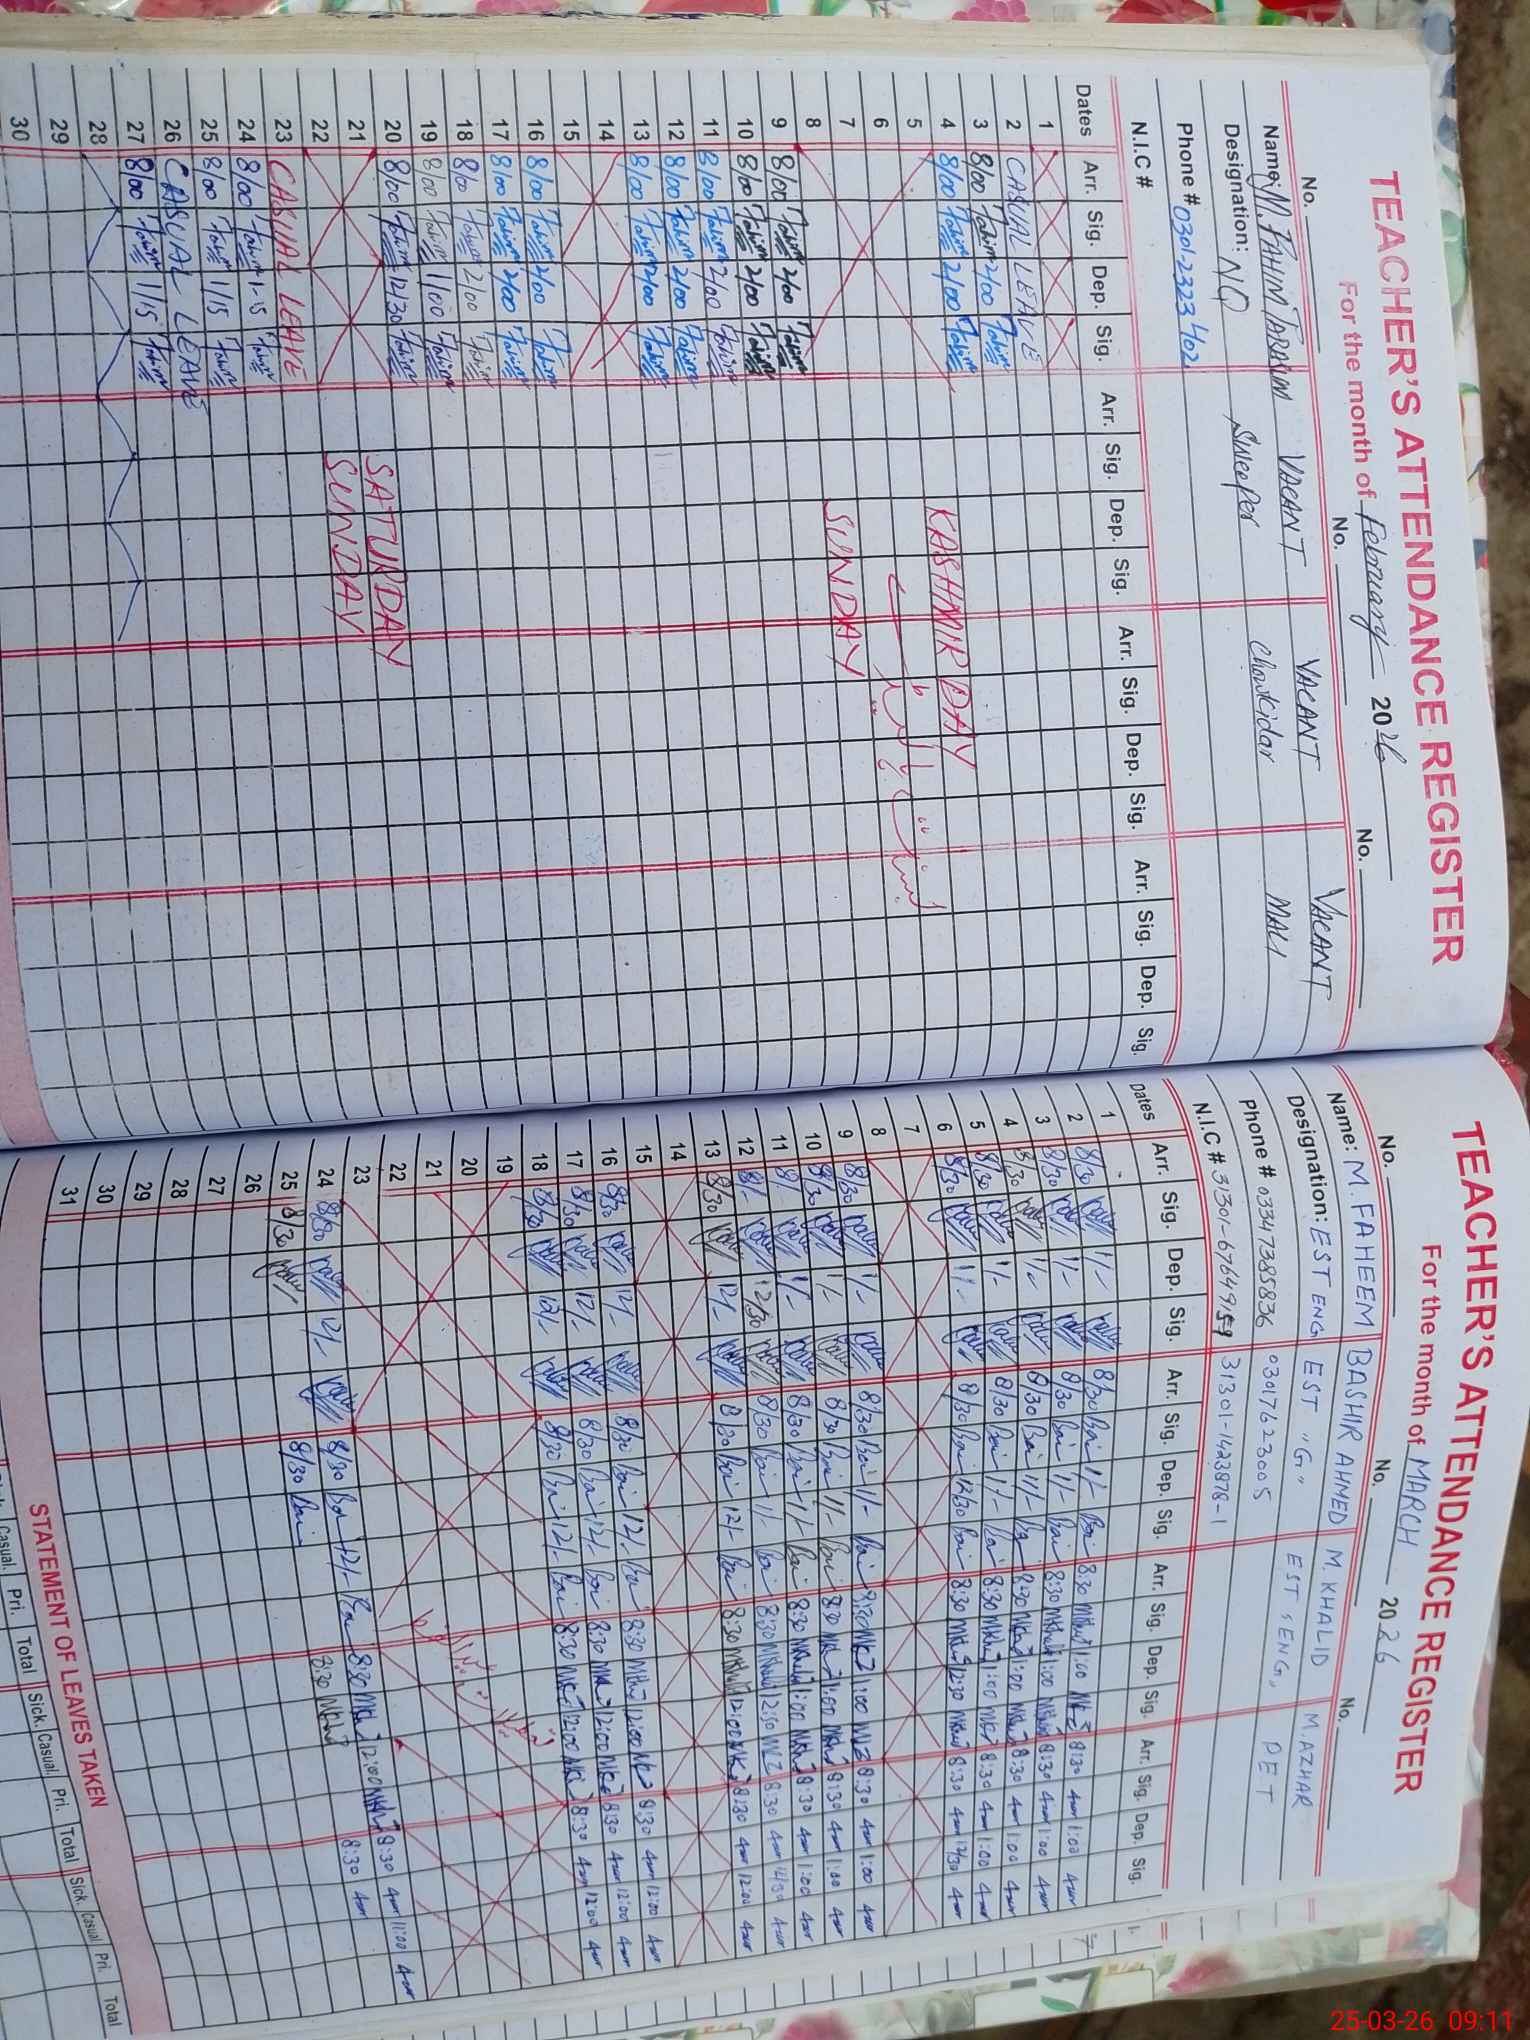 TEACHER'S ATTENDANCE REGISTER
For the month of February 2026
No. No. No.
Name: M. FAHIM TARARIM VACANT VACANT VACANT
Designation: NQ Sweeper Chowkidar MALI
Phone # 0301-2323402
N.I.C #
Dates Arr. Sig. Dep. Sig. Arr. Sig. Dep. Sig. Arr. Sig. Dep. Sig. Arr. Sig. Dep. Sig.
1
2 CASUAL LEAVE
3 8/00 Fahim 2/00 Fahim
4 8/00 Fahim 2/00 Fahim
5 KASHMIR DAY
6
7
8 SUNDAY
9 8/00 Fahim 2/00 Fahim
10 8/00 Fahim 2/00 Fahim
11 8/00 Fahim 2/00 Fahim
12 8/00 Fahim 2/00 Fahim
13 8/00 Fahim 2/00 Fahim
14
15
16 8/00 Fahim 2/00 Fahim
17 8/00 Fahim 2/00 Fahim
18 8/00 Fahim 2/00 Fahim
19 8/00 Fahim 1/00 Fahim
20 8/00 Fahim 12/30 Fahim
21 SATURDAY
22 SUNDAY
23 CASUAL LEAVE
24 8/00 Fahim 1-15 Fahim
25 8/00 Fahim 1/15 Fahim
26 CASUAL LEAVE
27 8/00 Fahim 1/15 Fahim
28
29
30
TEACHER'S ATTENDANCE REGISTER
For the month of MARCH 2026
No. No. No.
Name: M. FAHEEM BASHIR AHMED M. KHALID M. AZHAR
Designation: EST ENG EST "G" EST "ENG" PET
Phone # 03347385836 03017623005
N.I.C # 31301-6764915-9 31301-1423878-1
Dates Arr. Sig. Dep. Sig. Arr. Sig. Dep. Sig. Arr. Sig. Dep. Sig. Arr. Sig. Dep. Sig.
1
2 8/30 1/- 8/30 1/- 8:30 1:00 8:30 1:00
3 8/30 1/- 8/30 1/- 8:30 1:00 8:30 1:00
4 8/30 1/- 8/30 1/- 8:30 1:00 8:30 1:00
5 8/30 1/- 8/30 1/- 8:30 1:00 8:30 1:00
6 8/30 1/- 8/30 12/30 8:30 12:30 8:30 12/30
7
8 8/30 1/- 8/30 1/- 8:30 1:00 8:30 1:00
9 8/30 1/- 8/30 1/- 8:30 1:00 8:30 1:00
10 8/30 1/- 8/30 1/- 8:30 1:00 8:30 1:00
11 8/- 1/- 8/30 1/- 8:30 12:30 8:30 12/30
12 8/- 12/30 8/30 12/- 8:30 12:00 8:30 12:00
13 8/30 12/-
14
15
16 8/30 12/- 8/30 12/- 8:30 12:00 8:30 12:00
17 8/30 12/- 8/30 12/- 8:30 12:00 8:30 12:00
18 8/30 12/- 8/30 12/- 8:30 12:00 8:30 12:00
19
20
21
22
23
24 8/30 12/- 8/30 12/- 8:30 12:00 8:30 11:00
25 8/30 8/30 8:30 8:30
26
27
28
29
30
31
STATEMENT OF LEAVES TAKEN
Casual. Pri. Total Sick. Casual. Pri. Total Sick. Casual Pri. Total
25-03-26 09:11